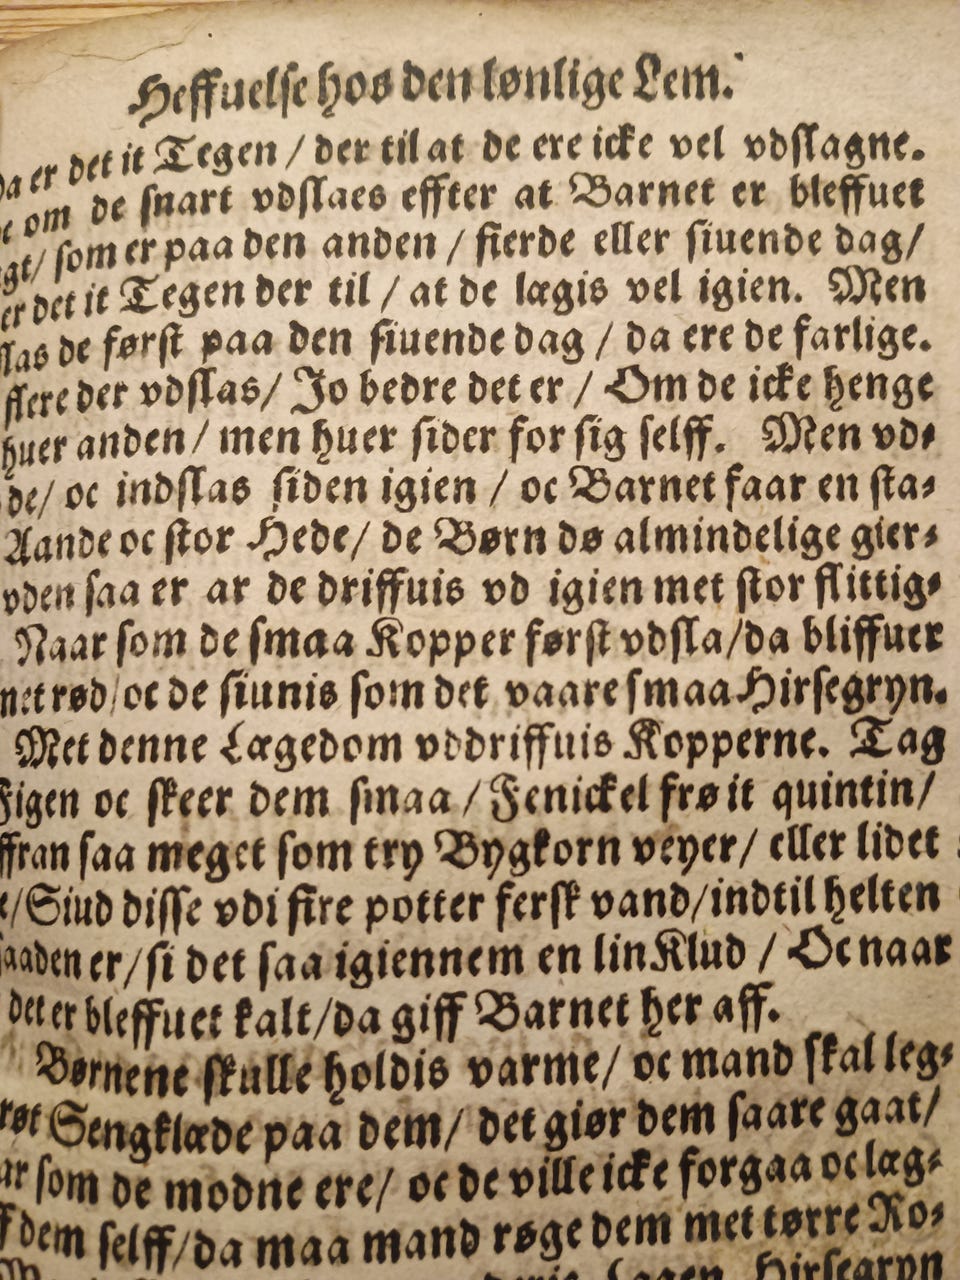 Heffuelse hos den lønlige Lem.
er det it Tegen / der til at de ere icke vel vdslagne.
om de snart vdslaes effter at Barnet er bleffuet
/ som er paa den anden / fierde eller siuende dag/
er det it Tegen der til / at de lægis vel igien. Men
de først paa den siuende dag / da ere de farlige.
flere der vdslas/ Jo bedre det er / Om de icke henge
huer anden / men huer sider for sig selff. Men vd⸗
de/ oc indslas siden igien / oc Barnet faar en sta⸗
Aande oc stor Hede/ de Børn dø almindelige gier⸗
vden saa er ar de driffuis vd igien met stor flittig⸗
Naar som de smaa Kopper først vdsla/da bliffuer
rød/oc de siunis som det vaare smaa Hirsegryn.
Met denne Lægedom vddriffuis Kopperne. Tag
Figen oc skeer dem smaa / Fenickel frø it quintin/
saa meget som try Bygkorn veyer/ eller lidet
/Siud disse vdi fire potter fersk vand/indtil helten
er/si det saa igiennem en lin Klud / Oc naar
det er bleffuet kalt/da giff Barnet her aff.
Børnene skulle holdis varme/ oc mand skal leg⸗
Sengklæde paa dem/ det giør dem saare gaat/
som de modne ere/ oc de ville icke forgaa oc læg⸗
dem selff/da maa mand røge dem met tørre Ro⸗
Lagen Hirsegryn